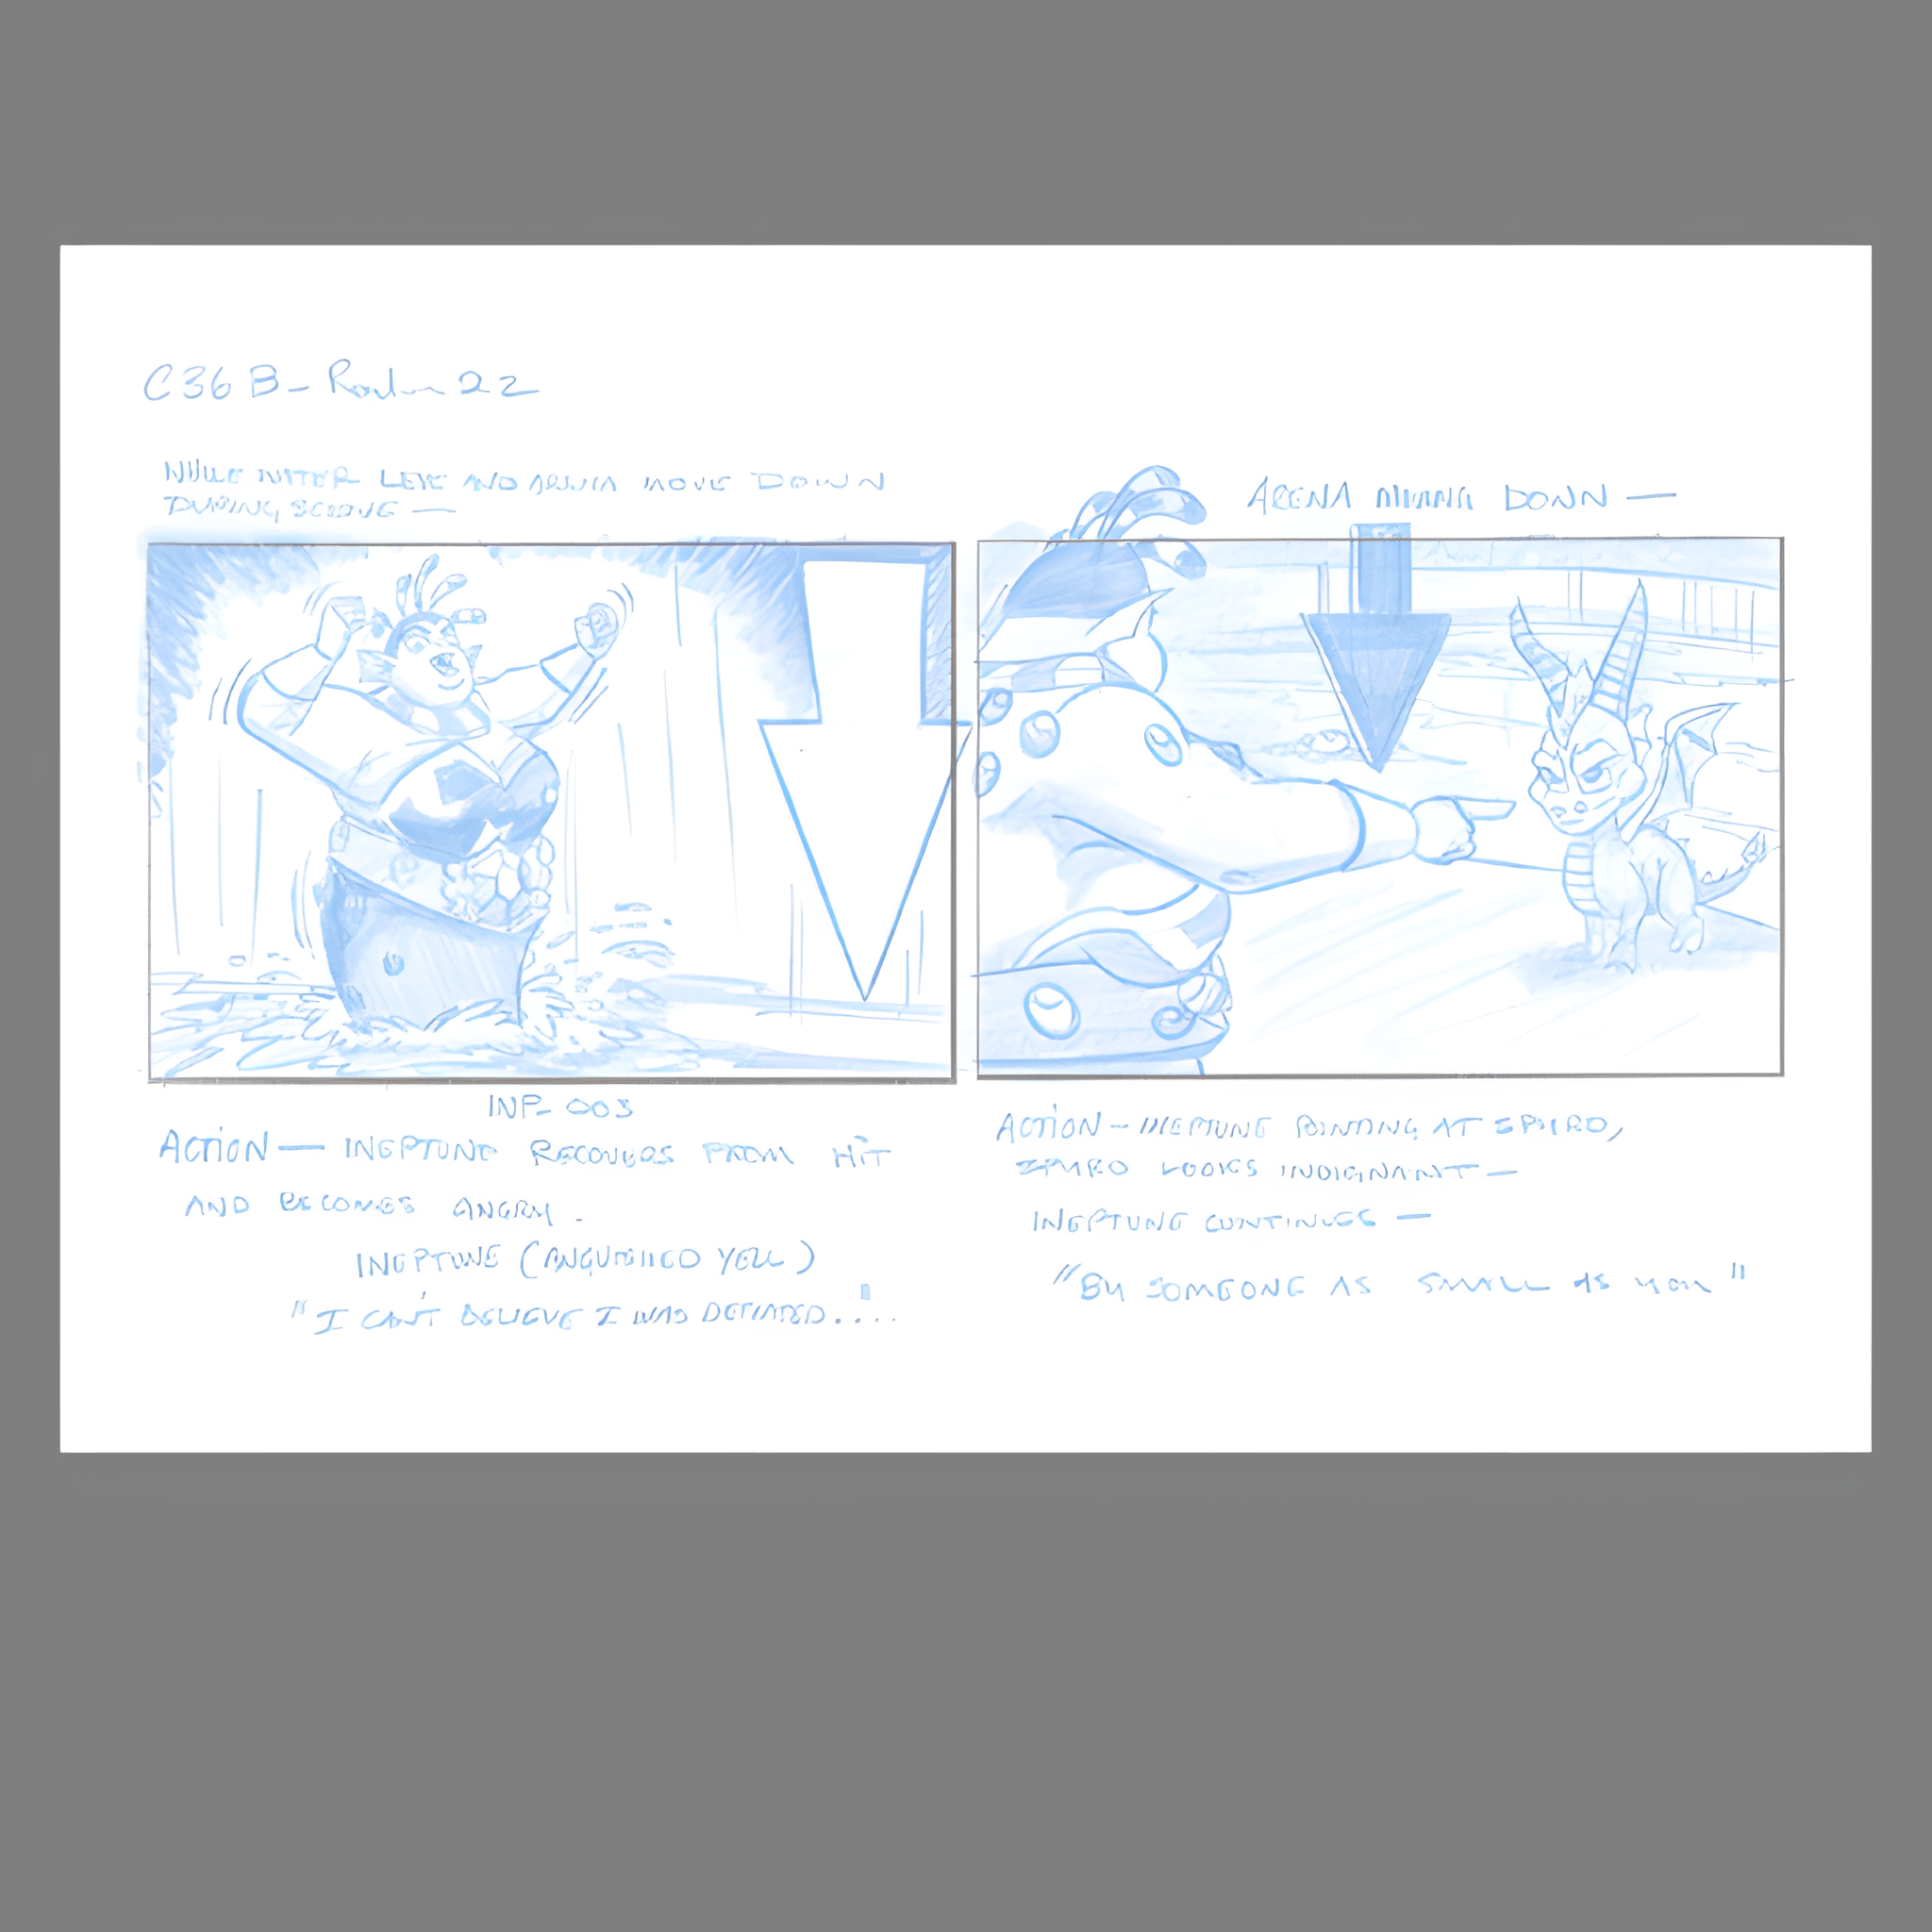 C36 B–
AND MOVE DOWN
DURING
ARENA DOWN —
INP- 003
ACTION — INEPTUNE RECOVERS FROM HIT
AND BECOMES ANGRY.
INEPTUNE (ANQUISHED YELL)
"I CAN'T BELIEVE I WAS DEFEATED....
ACTION – INEPTUNE POINTING AT SPYRO,
SPYRO LOOKS INDIGNANT —
INEPTUNE CONTINUES —
"BY SOMEONE AS SMALL AS YOU"